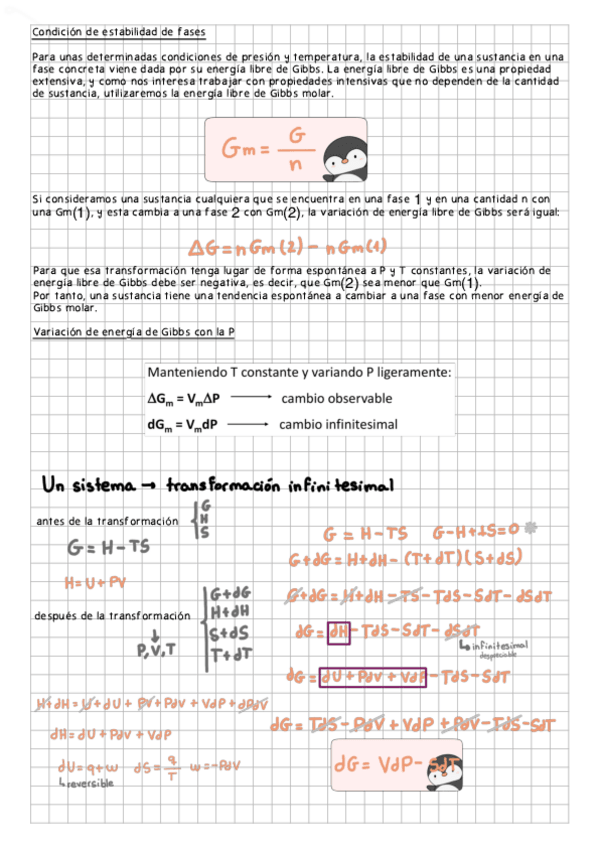 Condición de estabilidad de fases
Para unas determinadas condiciones de presión y temperatura, la estabilidad de una sustancia en una
fase concreta viene dada por su energía libre de Gibbs. La energía libre de Gibbs es una propiedad
extensiva, y como nos interesa trabajar con propiedades intensivas que no dependen de la cantidad
de sustancia, utilizaremos la energía libre de Gibbs molar.
Gm = G/n
Si consideramos una sustancia cualquiera que se encuentra en una fase 1 y en una cantidad n con
una Gm(1), y esta cambia a una fase 2 con Gm(2), la variación de energía libre de Gibbs será igual:
ΔG = n Gm (2) - n Gm (1)
Para que esa transformación tenga lugar de forma espontánea a P y T constantes, la variación de
energía libre de Gibbs debe ser negativa, es decir, que Gm(2) sea menor que Gm(1).
Por tanto, una sustancia tiene una tendencia espontánea a cambiar a una fase con menor energía de
Gibbs molar.
Variación de energía de Gibbs con la P
Manteniendo T constante y variando P ligeramente:
ΔGm = VmΔP → cambio observable
dGm = VmdP → cambio infinitesimal
Un sistema → transformación infinitesimal
antes de la transformación { G H S
G = H - TS
H = U + PV
después de la transformación
↓
P, V, T
G + dG
H + dH
S + dS
T + dT
H + dH = U + dU + PV + PdV + VdP + dPdV
dH = dU + PdV + VdP
dU = q + w dS = q/T w = -PdV
↳ reversible
G = H - TS G - H + TS = 0
G + dG = H + dH - (T + dT)(S + dS)
G + dG = H + dH - TS - TdS - SdT - dSdT
dG = dH - TdS - SdT - dSdT
↳ infinitesimal
despreciable
dG = dU + PdV + VdP - TdS - SdT
dG = TdS - PdV + VdP + PdV - TdS - SdT
dG = VdP - SdT